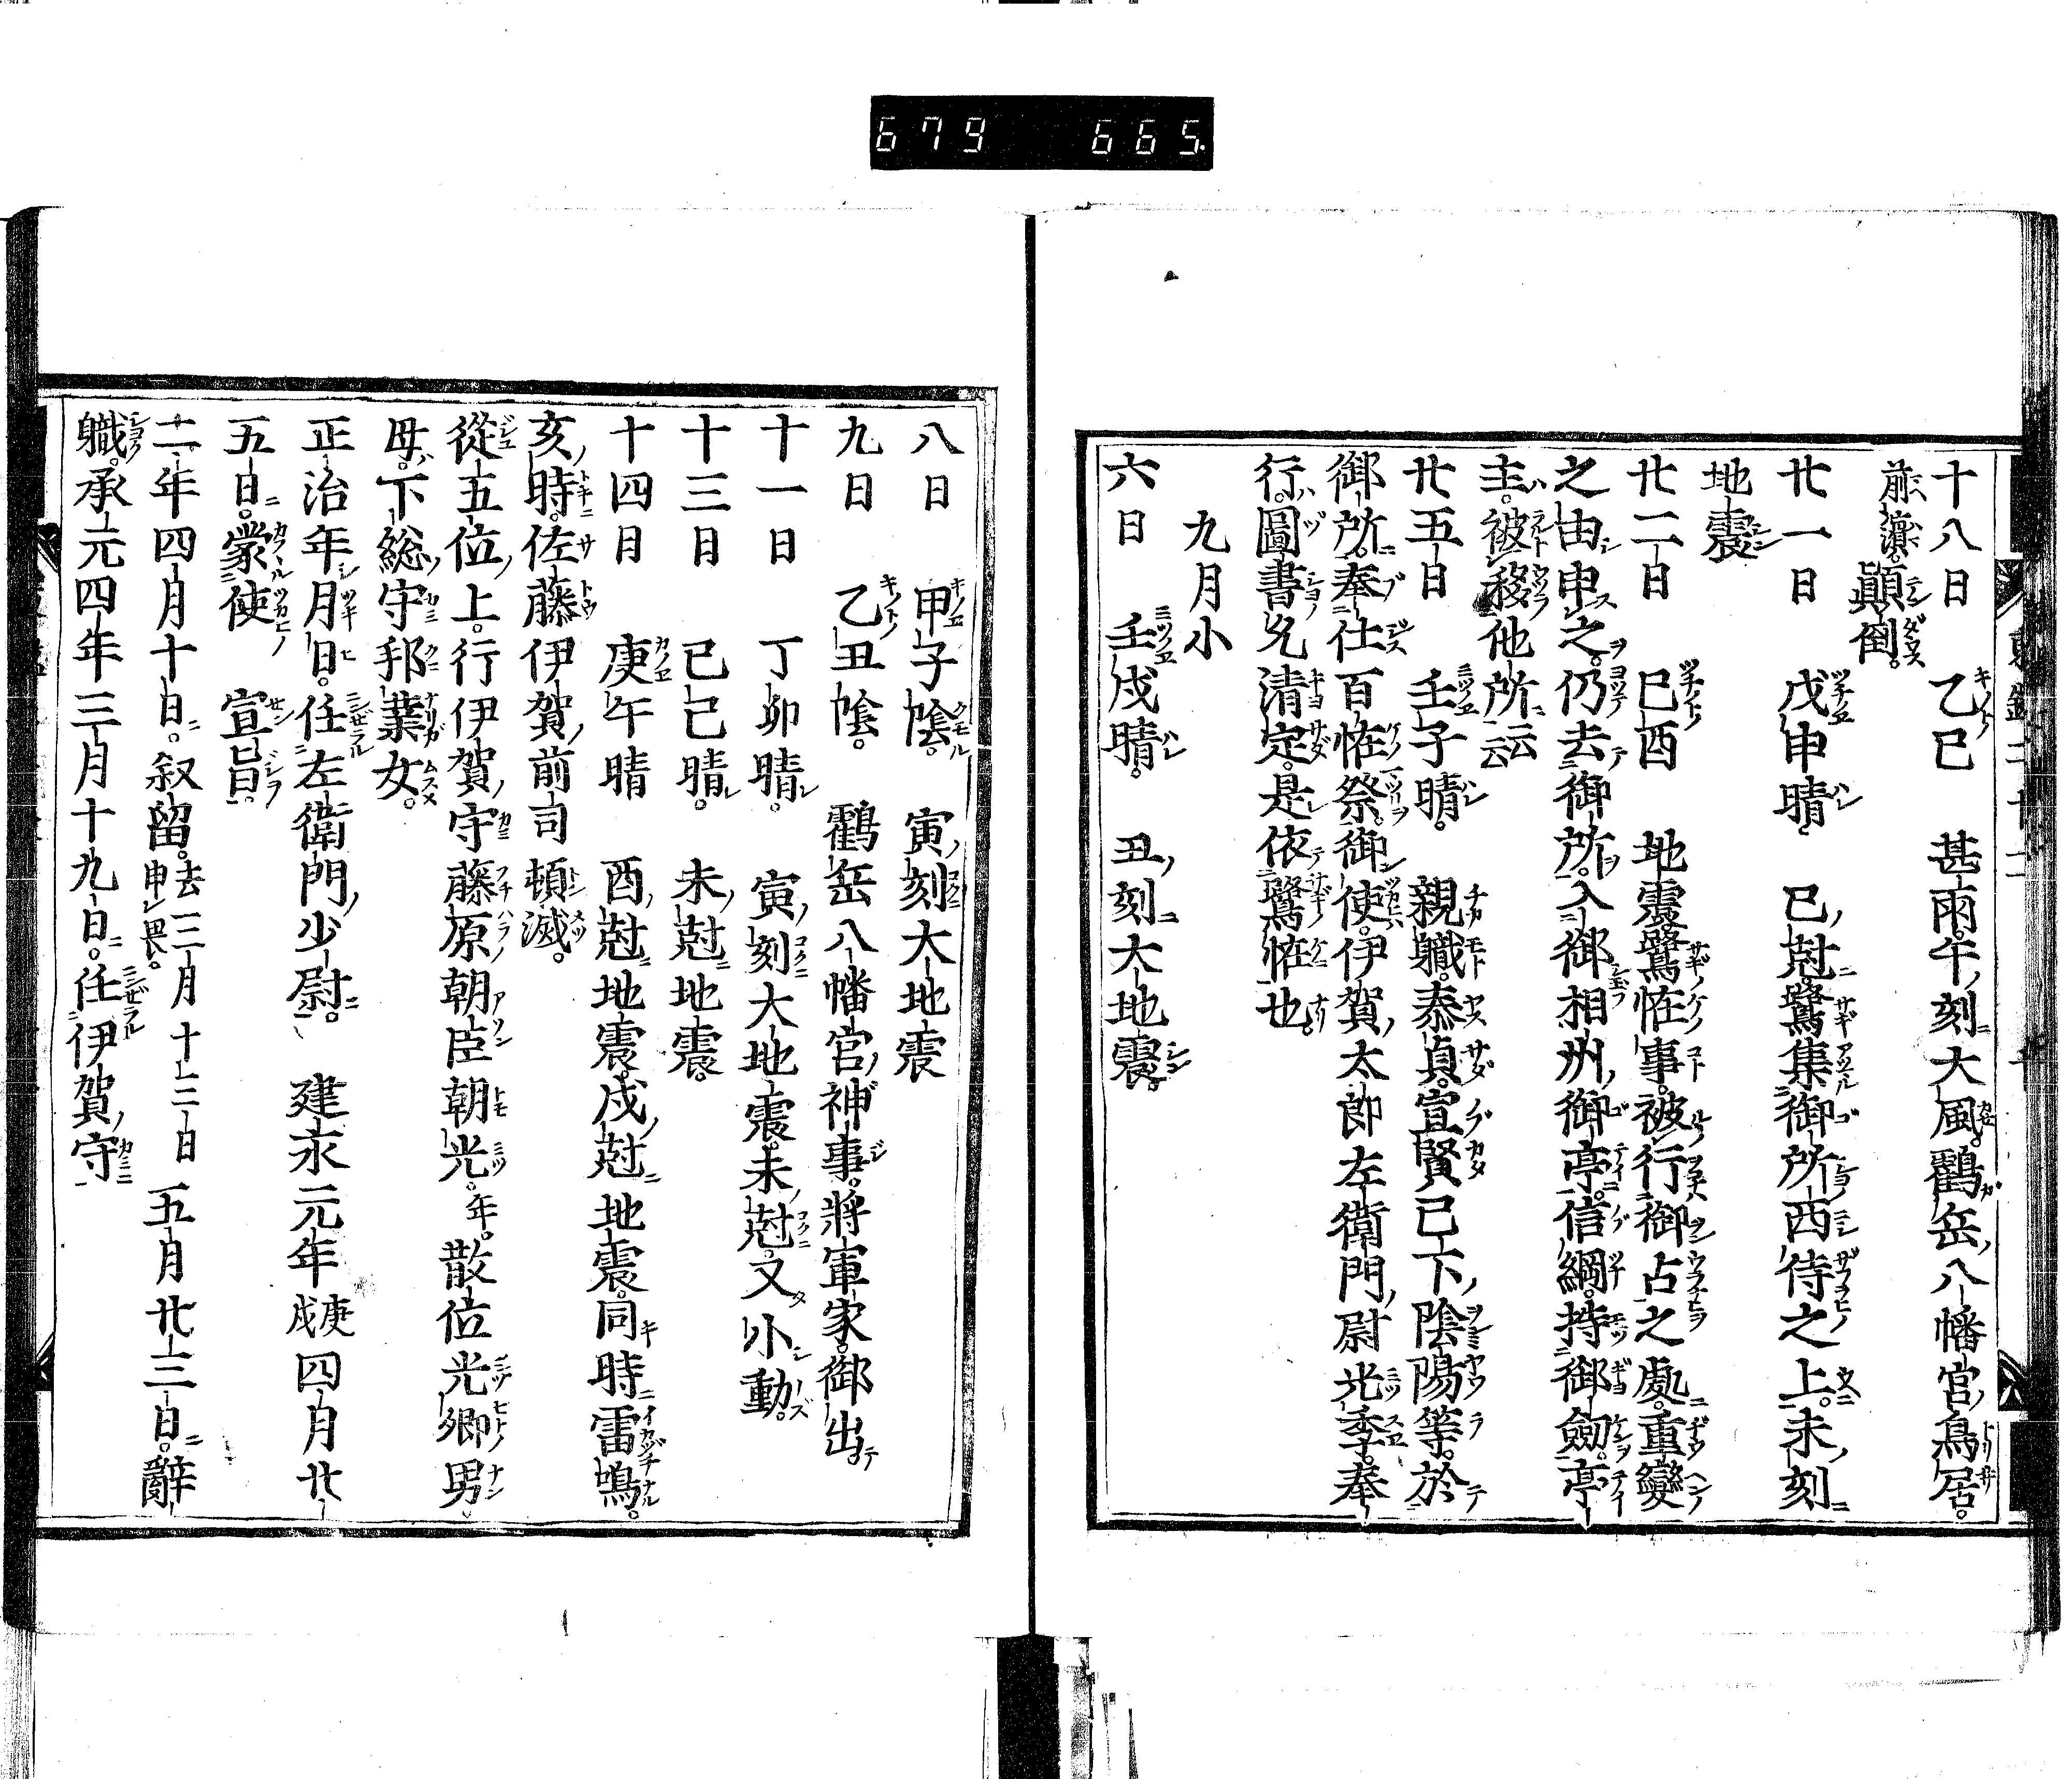 679 665
十八日 乙巳 甚雨。午ノ刻ニ大風。鸖岳ノ八幡宮ノ鳥居。
前濵。顚倒。
廿一日 戊申晴。 巳ノ尅ニ鷺集御所西侍之上。未ノ刻ニ
地震
廿二日 巳酉 地震鷺恠事。被行御占之處。重變
之由申之。仍去御所。入御相州ノ御亭。信綱。持御劔。亭
主。被移他所云云
廿五日 壬子晴。 親職。泰貞。宣賢已下ノ陰陽等。於
御所。奉仕百恠祭。御使。伊賀ノ太郎左衛門ノ尉光季。奉
行。圖書允清定。是依鷺恠也。
九月小
六日 壬戌晴。 丑ノ刻ニ大地震。
八日 甲子陰。 寅ノ刻大地震
九日 乙丑陰。 鸖岳八幡宮ノ神事。將軍家。御出
十一日 丁卯晴。 寅ノ刻大地震。未ノ尅。又小動。
十三日 己巳晴。 未ノ尅地震。
十四日 庚午晴 酉ノ尅地震。戌ノ尅地震。同時雷鳴。
亥ノ時。佐藤伊賀ノ前司 頓滅。
從五位ノ上。行伊賀ノ守藤原朝臣朝光。年。散位光郷男。
母。下総ノ守邦業女。
正治年月日。任左衛門ノ少尉。 建永元年庚戌四月廿
五日。蒙使ノ 宣旨。
二年四月十日。叙留。去三月十三日申畏。五月廿三日。辭
職。承元四年三月十九日。任伊賀ノ守